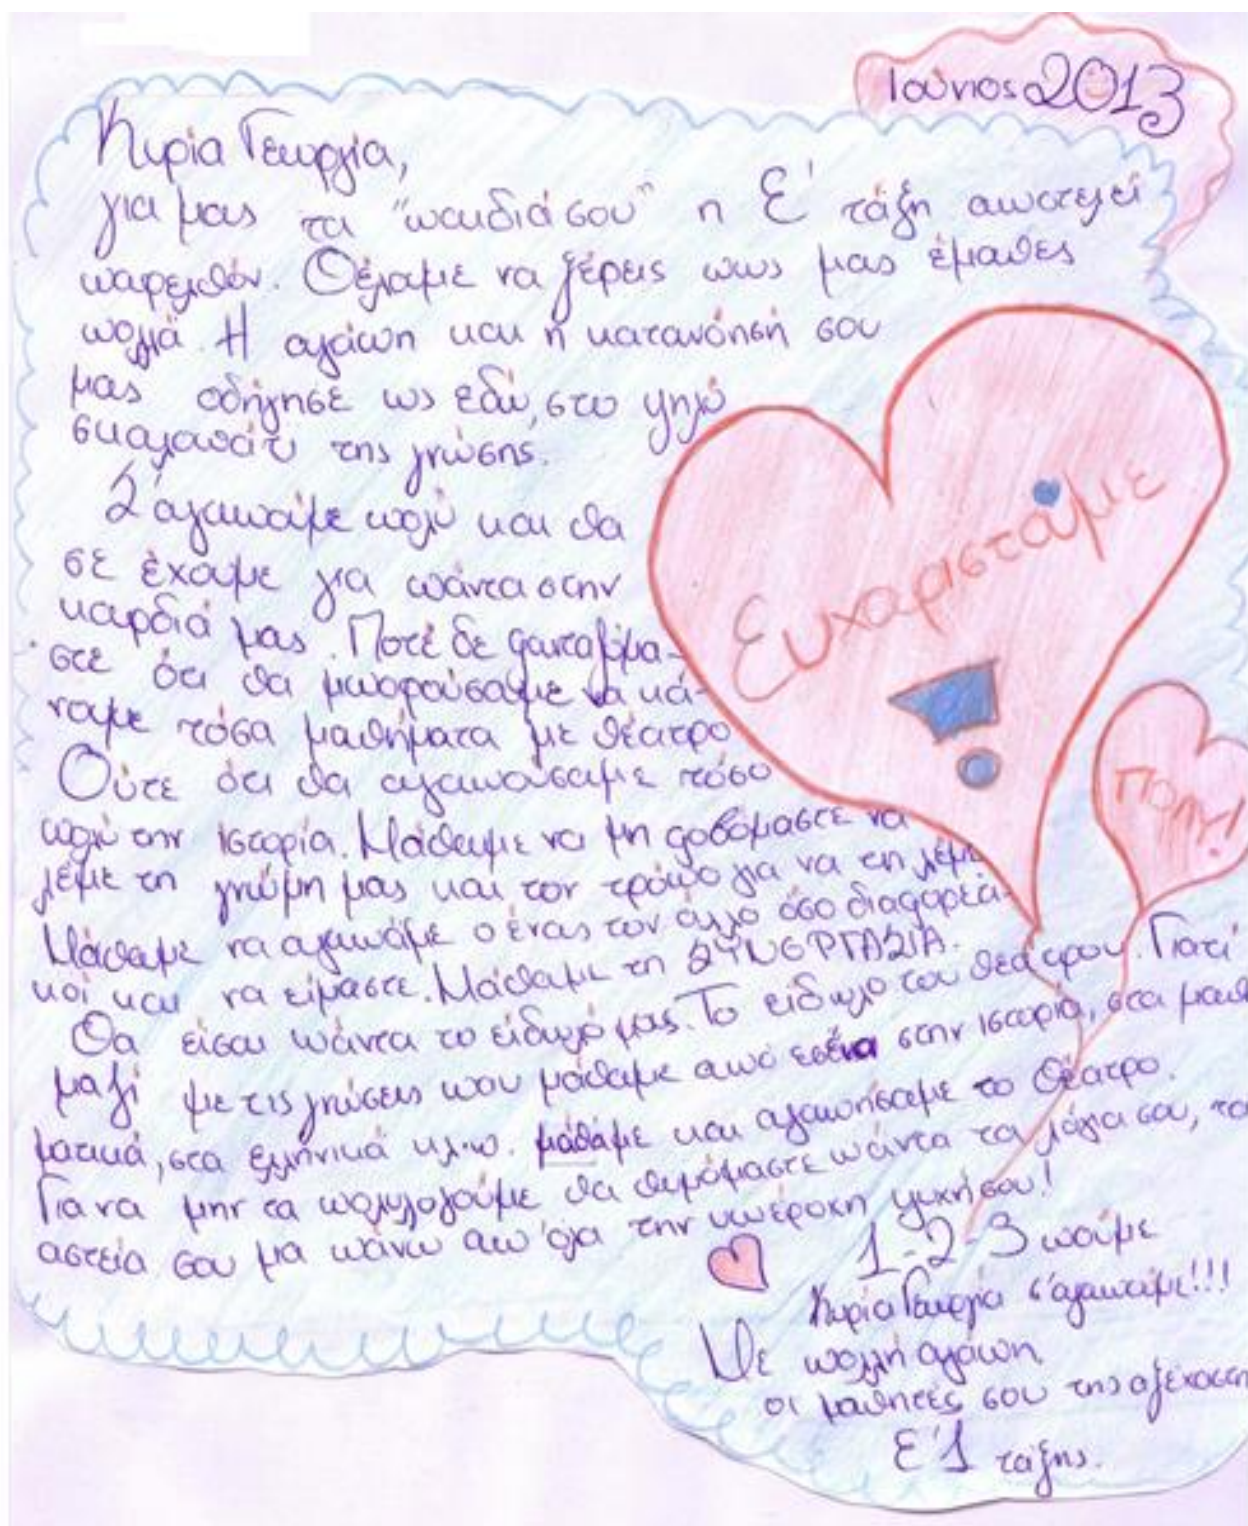 Ιούνιος 2013
Κυρία Γεωργία,
για μας τα "παιδιά σου" η Ε' τάξη αποτελεί
παρελθόν. Θέλαμε να ξέρεις πως μας έμαθες
πολλά. Η αγάπη και η κατανόησή σου
μας οδήγησε ως εδώ, στο ψηλό
σκαλοπάτι της γνώσης.
Σ'αγαπάμε πολύ και θα
σε έχουμε για πάντα στην
καρδιά μας. Ποτέ δε φανταζόμα-
στε ότι θα μπορούσαμε να κά-
ναμε τόσα μαθήματα με θέατρο
Ούτε ότι θα αγαπούσαμε τόσο
πολύ την ιστορία. Μάθαμε να μη φοβόμαστε να
λέμε τη γνώμη μας και τον τρόπο για να τη λέμε
Μάθαμε να αγαπάμε ο ένας τον άλλο όσο διαφορετι-
κοί και να είμαστε. Μάθαμε τη ΣΥΝΕΡΓΑΣΙΑ.
Θα είσαι πάντα το είδωλό μας. Το είδωλο του θεάτρου. Γιατί
μαζί με τις γνώσεις που μάθαμε από εσένα στην ιστορία, στα μαθη
ματικά, στα ελληνικά κλ.π. μάθαμε και αγαπήσαμε το θέατρο.
Για να μην τα πολυλογούμε θα θυμόμαστε πάντα τα λόγια σου, τα
αστεία σου μα πάνω απ'όλα την υπέροχη ψυχή σου!
1-2-3 πούμε
Κυρία Γεωργία σ'αγαπάμε!!!
Με πολλή αγάπη
οι μαθητές σου της αξέχαστη
Ε'1 τάξης.
Ευχαριστούμε
Πολύ!